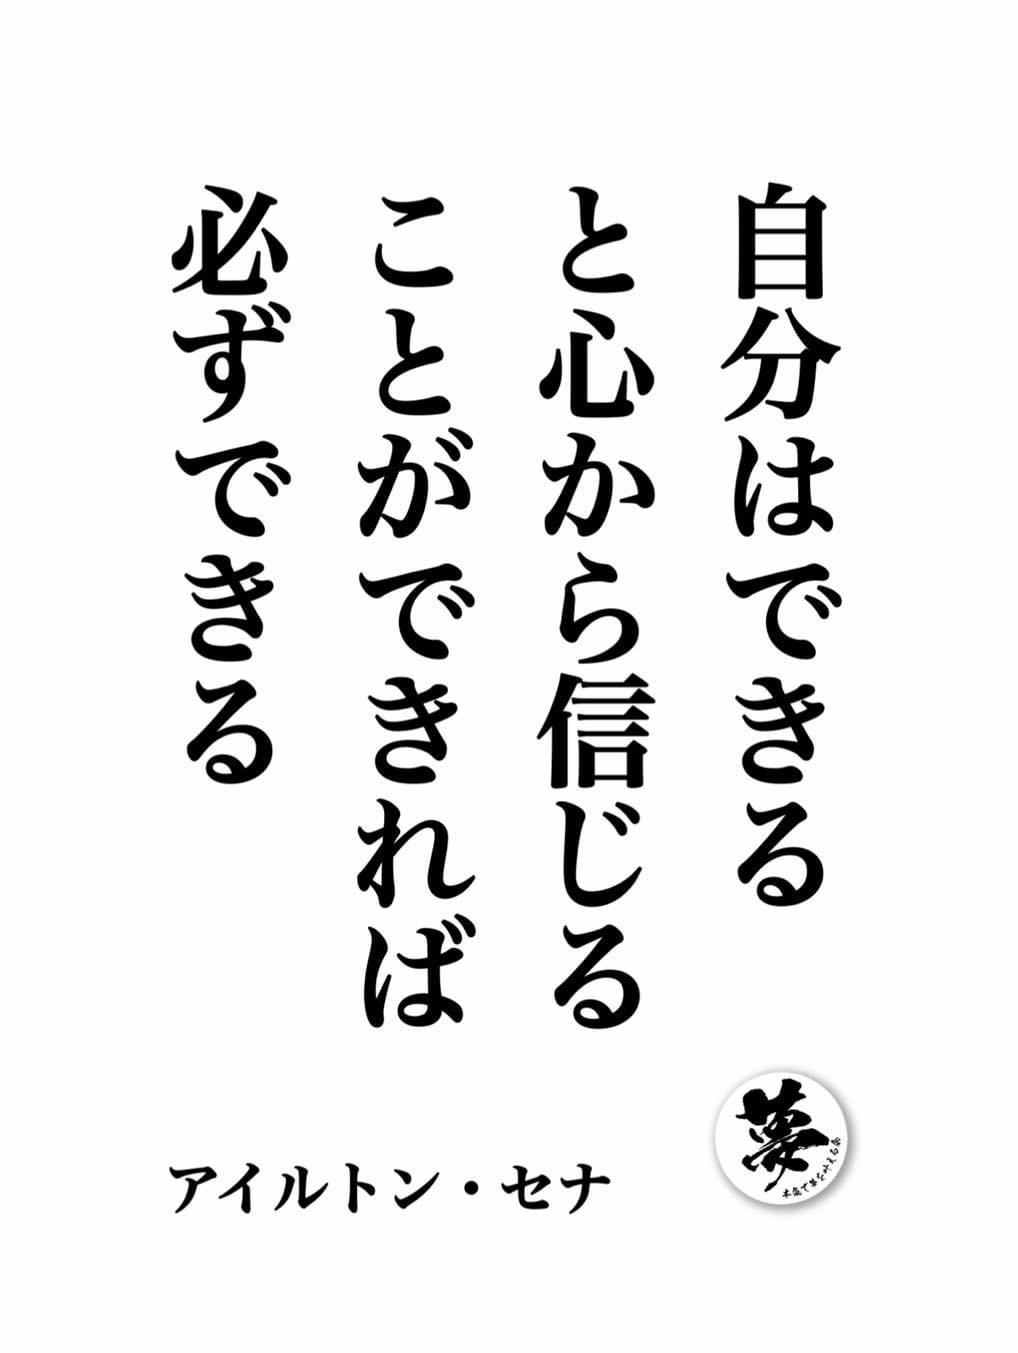 自分はできる
と心から信じる
ことができれば
必ずできる
アイルトン・セナ
夢
本気で夢を叶える会